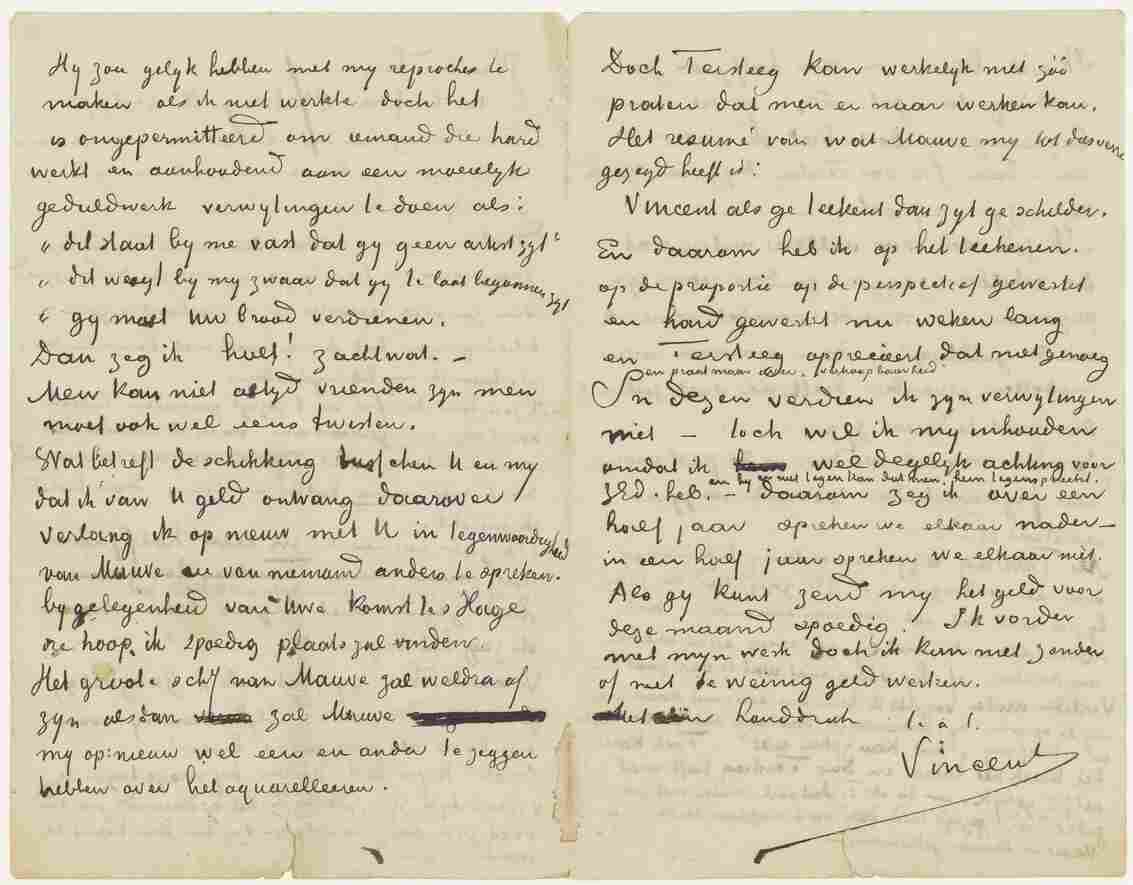 Hy zou gelyk hebben met my reproches te
maken als ik niet werkte doch het
is ongepermitteerd om iemand die hard
werkt en aanhoudend aan een moeielyk
geduldwerk verwytingen te doen als:
„ dit staat by me vast dat gy geen artist zyt “
„ dit weegt by my zwaar dat gy te laat begonnen zyt
“ gy moet Uw brood verdienen.
Dan zeg ik halt! zacht wat. –
Men kan niet altyd vrienden zyn men
moet ook wel eens twisten.
Wat betreft de schikking tusschen U en my
dat ik van U geld ontvang daarover
verlang ik op nieuw met U in tegenwoordigheid
van Mauve en van niemand anders te spreken.
by gelegenheid van Uwe komst te s Hage
die hoop ik spoedig plaats zal vinden.
Het groote schy van Mauve zal weldra af
zyn alsdan zal Mauve
my op nieuw wel een en ander te zeggen
hebben over het aquarelleeren.
Doch Tersteeg kan werkelyk niet zóó
praten dat men er naar werken kan.
Het resumé van wat Mauve my tot dusverre
gezegd heeft is:
Vincent als ge teekent dan zyt ge schilder.
En daarom heb ik op het teekenen.
op de proportie op de perspectief gewerkt
en hard gewerkt nu weken lang
en Tersteeg apprecieert dat niet genoeg
en praat maar over „verkoopbaarheid“
In dezen verdien ik zyn verwytingen
niet – toch wil ik my inhouden
omdat ik wel degelyk achting voor
en hy er niet tegen kan dat men hem tegenspreekt.
ZEd. heb. – daarom zeg ik over een
half jaar spreken we elkaar nader –
in een half jaar spreken we elkaar niet.
Als gy kunt zend my het geld voor
deze maand spoedig. Ik vorder
met myn werk doch ik kan niet zonder
of met te weinig geld werken.
Met een handdruk t. à t.
Vincent